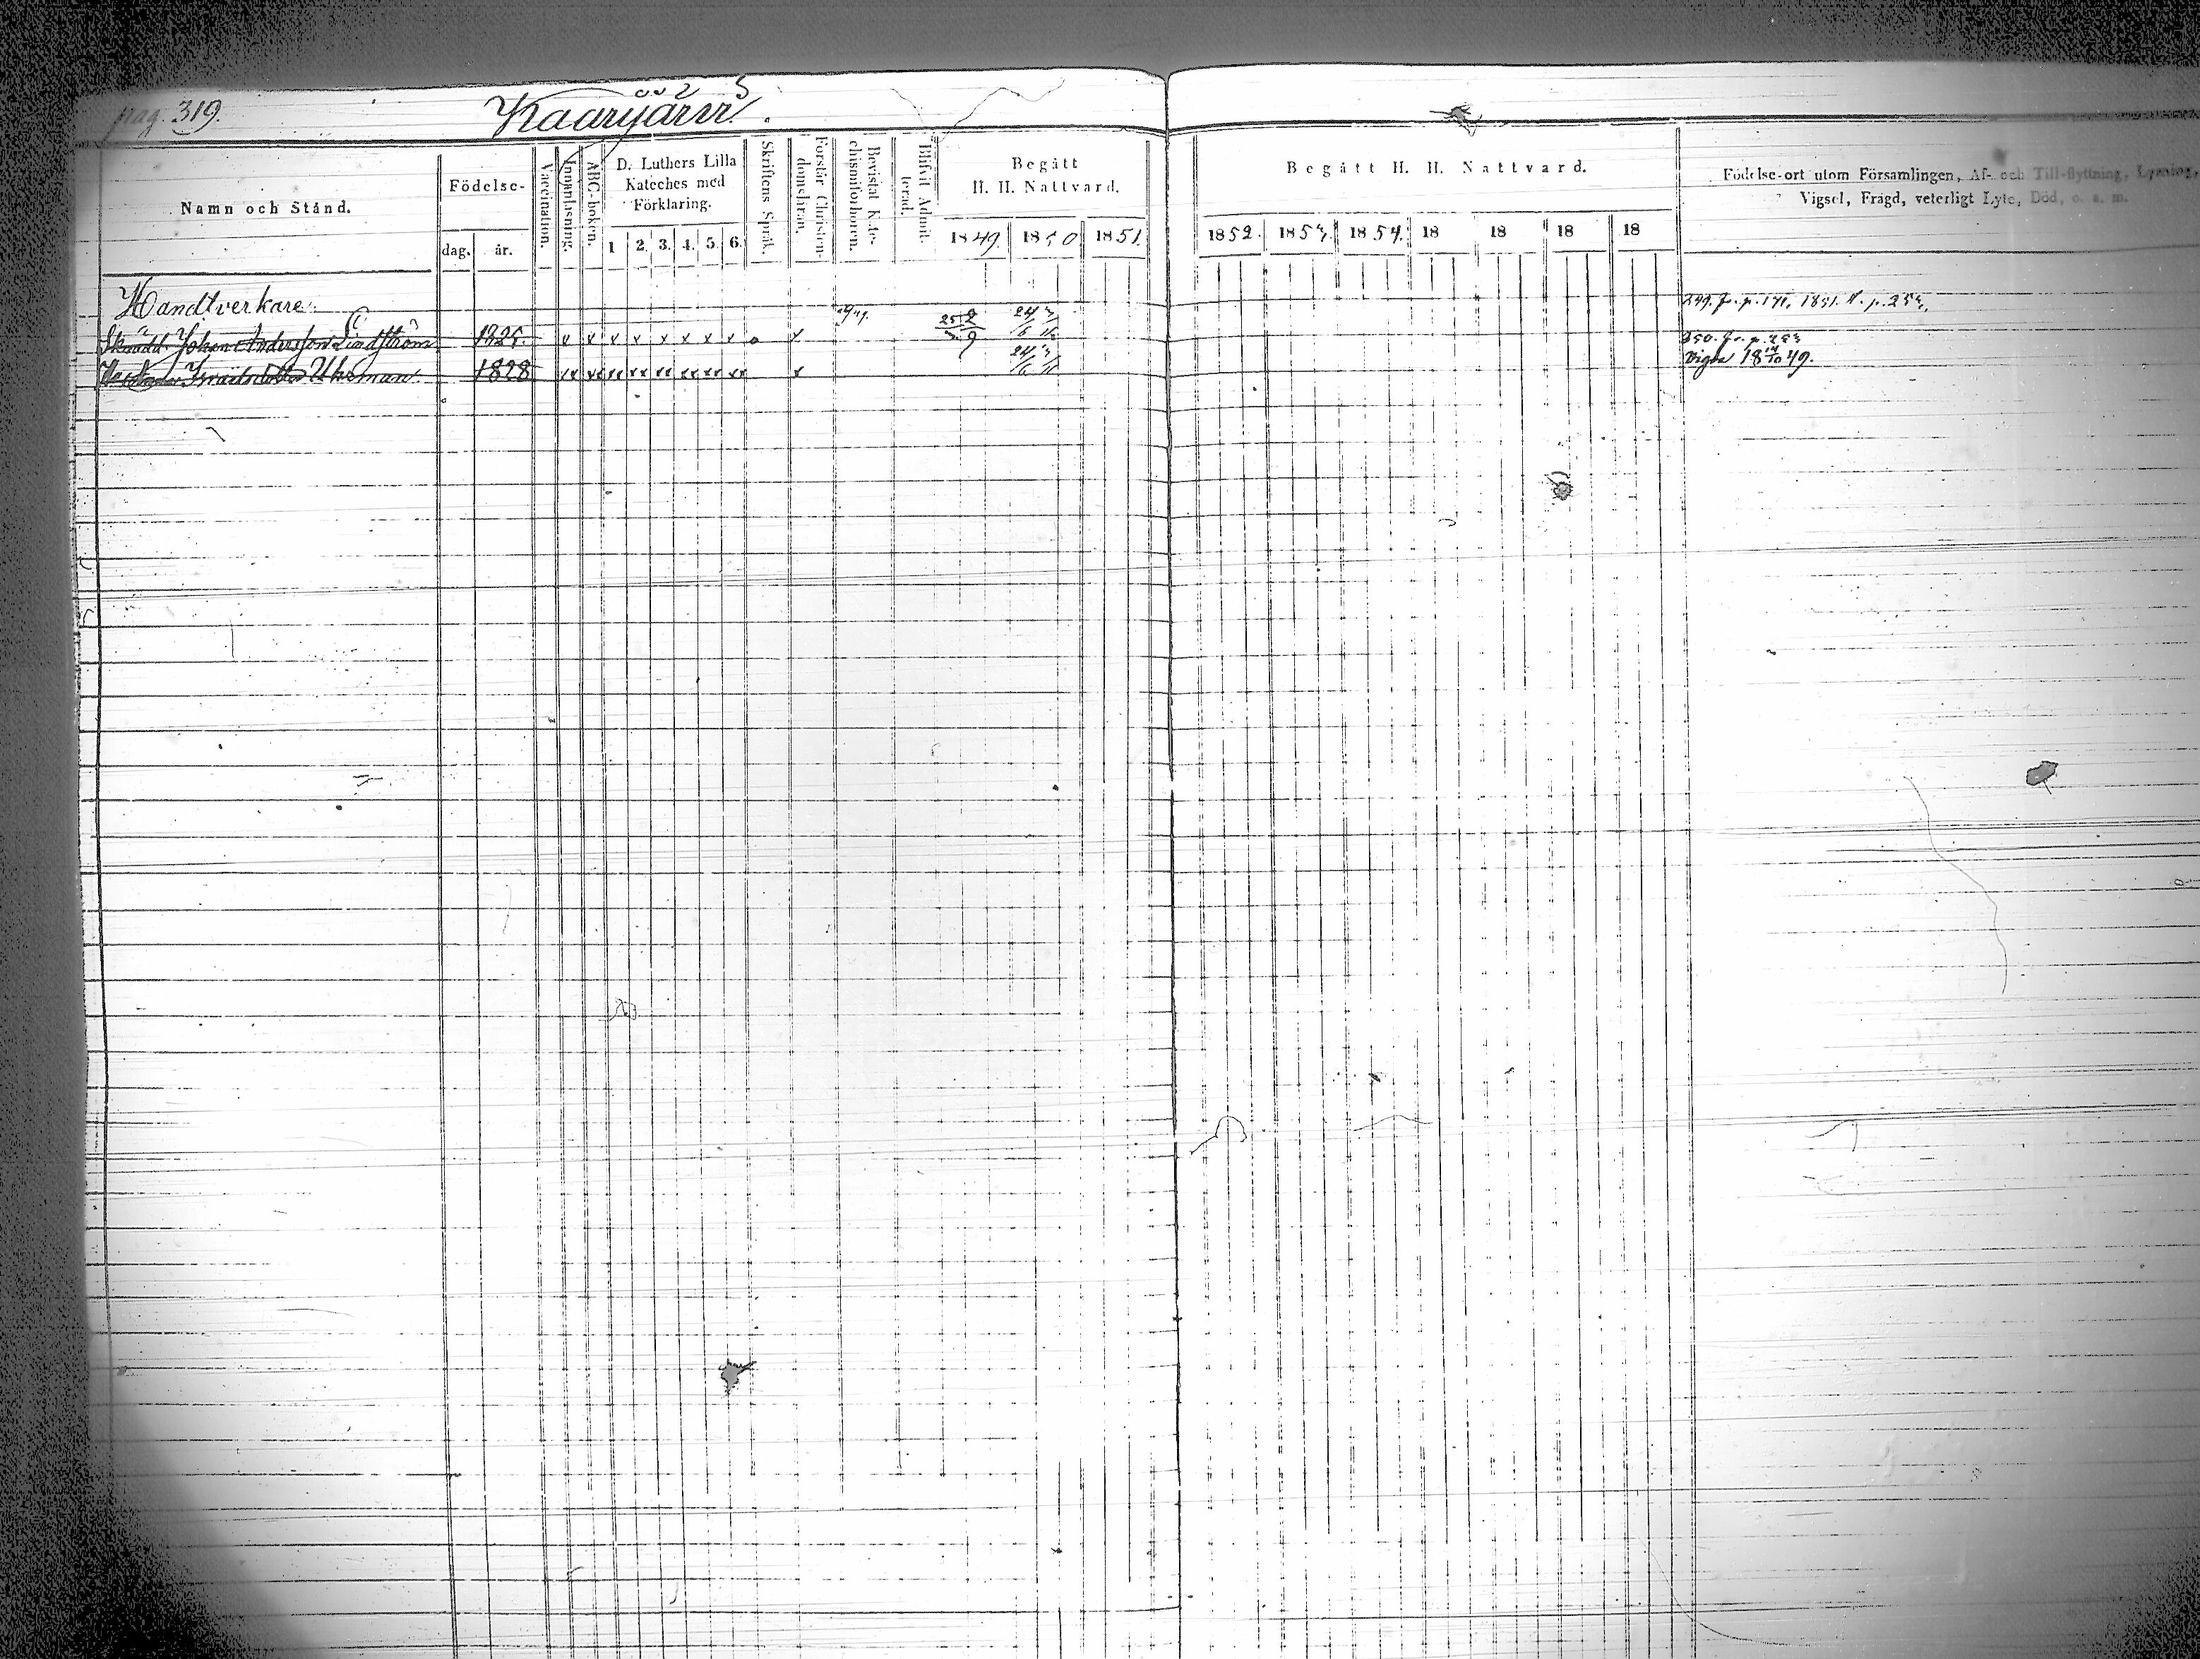 pag. 319.
Kaarjärvi.
Namn och Stånd.
Födelse-
dag. år.
Vaccination.
Innanläsning.
ABC-boken.
D. Luthers Lilla
Kateches med
Förklaring.
1 2. 3. 4. 5. 6.
Skriftens Språk.
Förstår Christen-
domsläran.
Bevistat Kate-
chismiförhören.
Blifvit Admit-
terad.
Begått
H. H. Nattvard.
1849. 1850 1851.
Begått H. H. Nattvard.
1852. 1853. 1854. 18 18 18 18
Födelse-ort utom Församlingen, Af- och Till-flyttning, Lysning,
Vigsel, Frägd, veterligt Lyte, Död, o. s. m.
Handtverkare.
249. fr. p. 171. 1851. t. p. 253.
Skrädd. Johan Andersson Lindström 1825. x x x x x x x x o x
850. fr. p. 253
Israelsdotter Uhoman. 1828 xx xx xx xx xx xx xx xx x
Vigde 18 14/10 49.